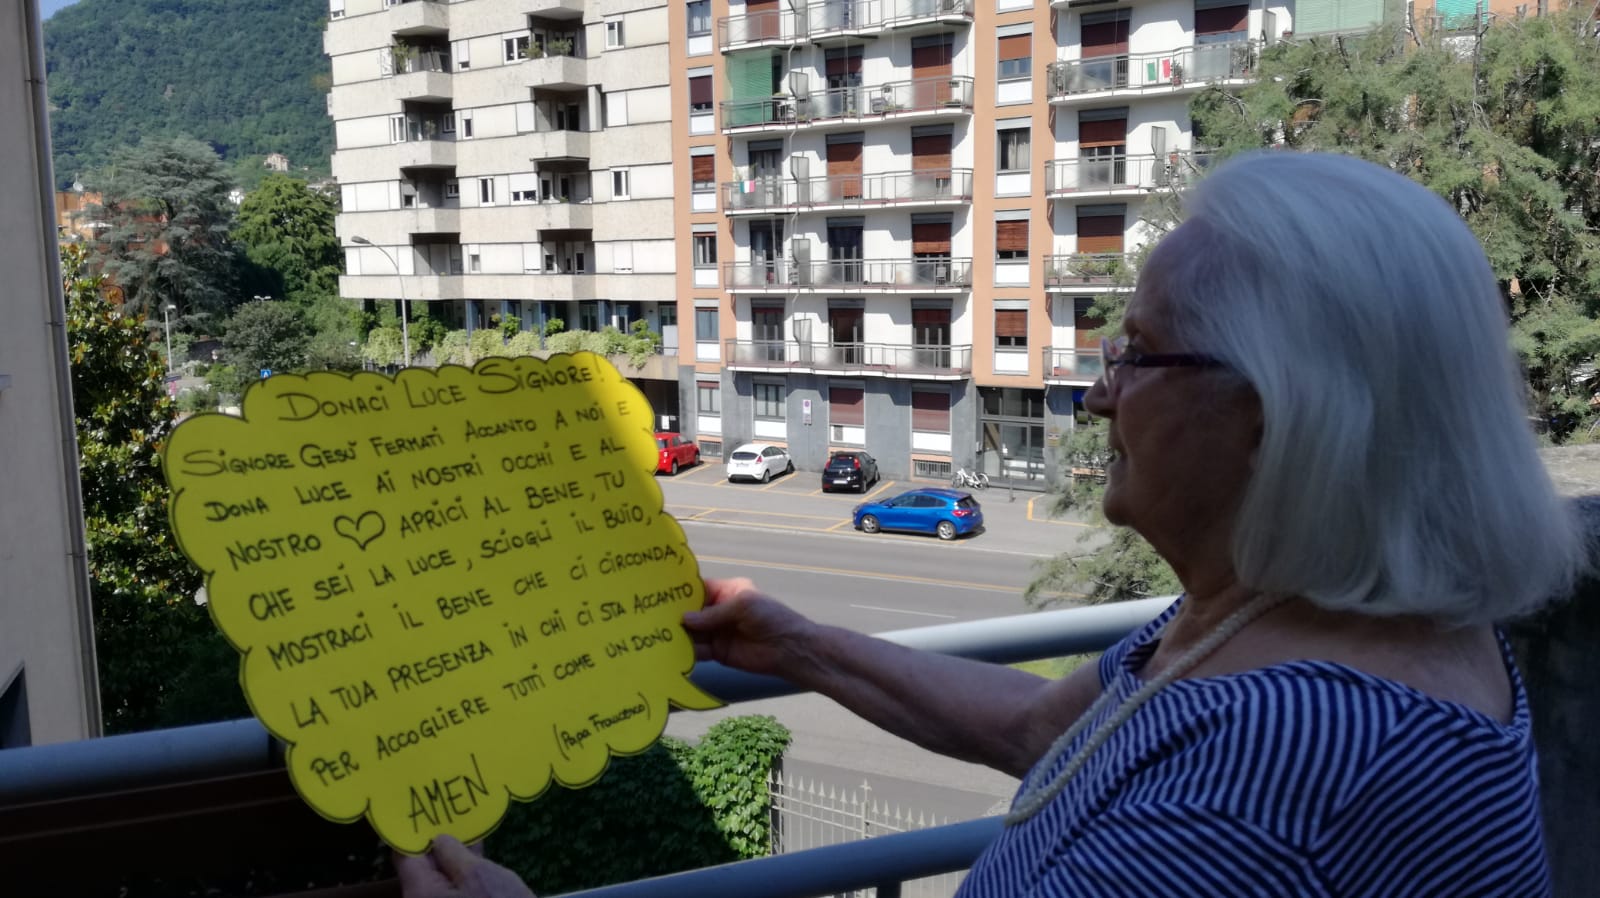 DONACI LUCE SIGNORE!
SIGNORE GESÙ FERMATI ACCANTO A NOI E
DONA LUCE AI NOSTRI OCCHI E AL
NOSTRO ♡ APRICI AL BENE, TU
CHE SEI LA LUCE, SCIOGLI IL BUIO,
MOSTRACI IL BENE CHE CI CIRCONDA,
LA TUA PRESENZA IN CHI CI STA ACCANTO
PER ACCOGLIERE TUTTI COME UN DONO
AMEN (Papa Francesco)